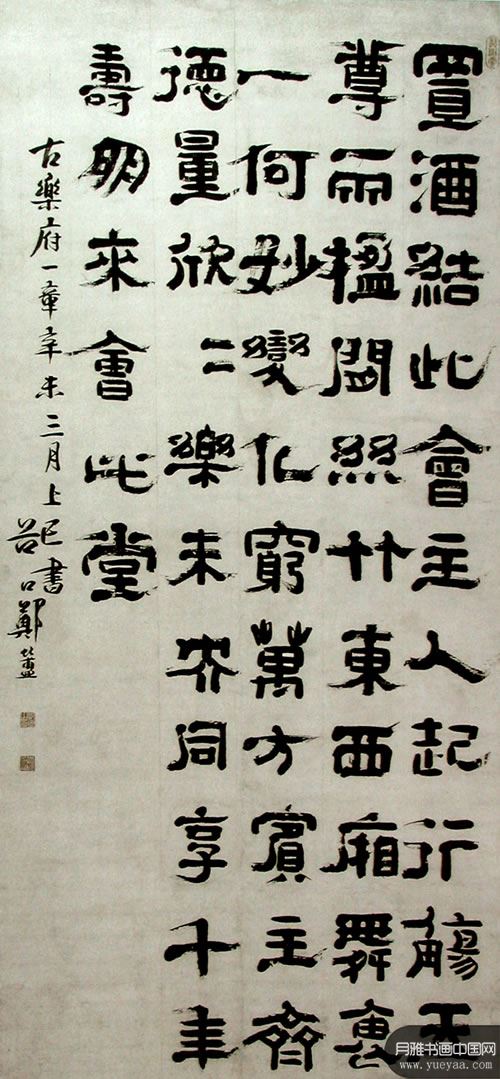 置酒結此會主人起行觴玉
尊兩楹間絲竹東西廂舞袖
一何妙變化窮萬方賓主齊
德量欣二樂未央同享千年
壽朋來會此堂
古樂府一章辛未三月上巳書
谷口鄭簠
月雅书画中国网
www.yueyaa.com